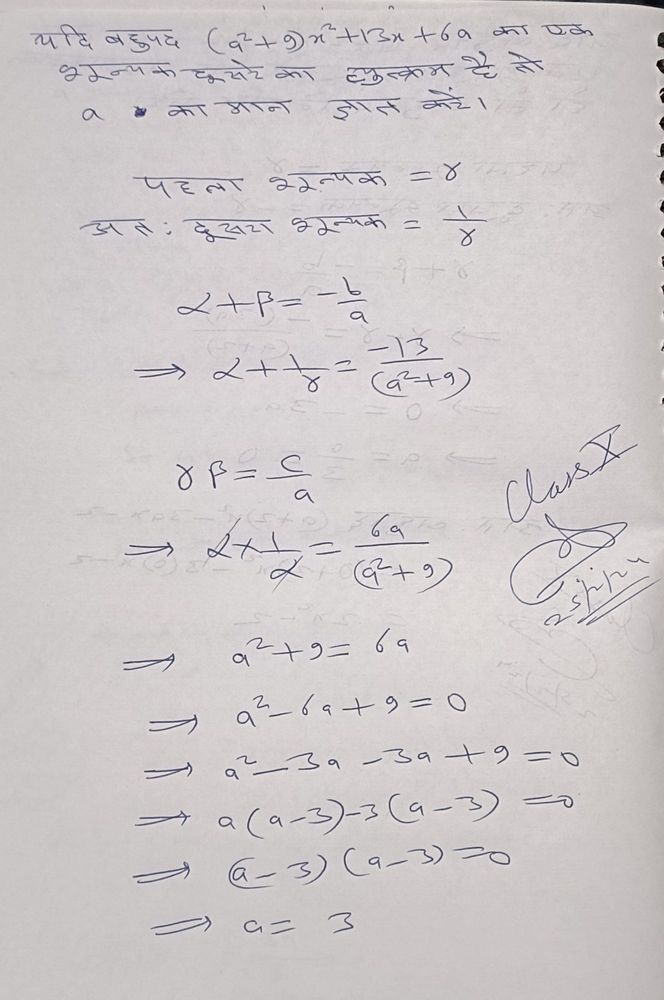 यदि बहुपद (a²+9)x²+13x+6a का एक
शून्यक दूसरे का व्युत्क्रम है तो
a का मान ज्ञात करें।
पहला शून्यक = α
अतः दूसरा शून्यक = 1/α
α+β = -b/a
⇒ α+1/α = -13/(a²+9)
αβ = c/a
⇒ α×1/α = 6a/(a²+9)
Class X
⇒ a²+9 = 6a
⇒ a²-6a+9=0
⇒ a²-3a-3a+9=0
⇒ a(a-3)-3(a-3)=0
⇒ (a-3)(a-3)=0
⇒ a= 3